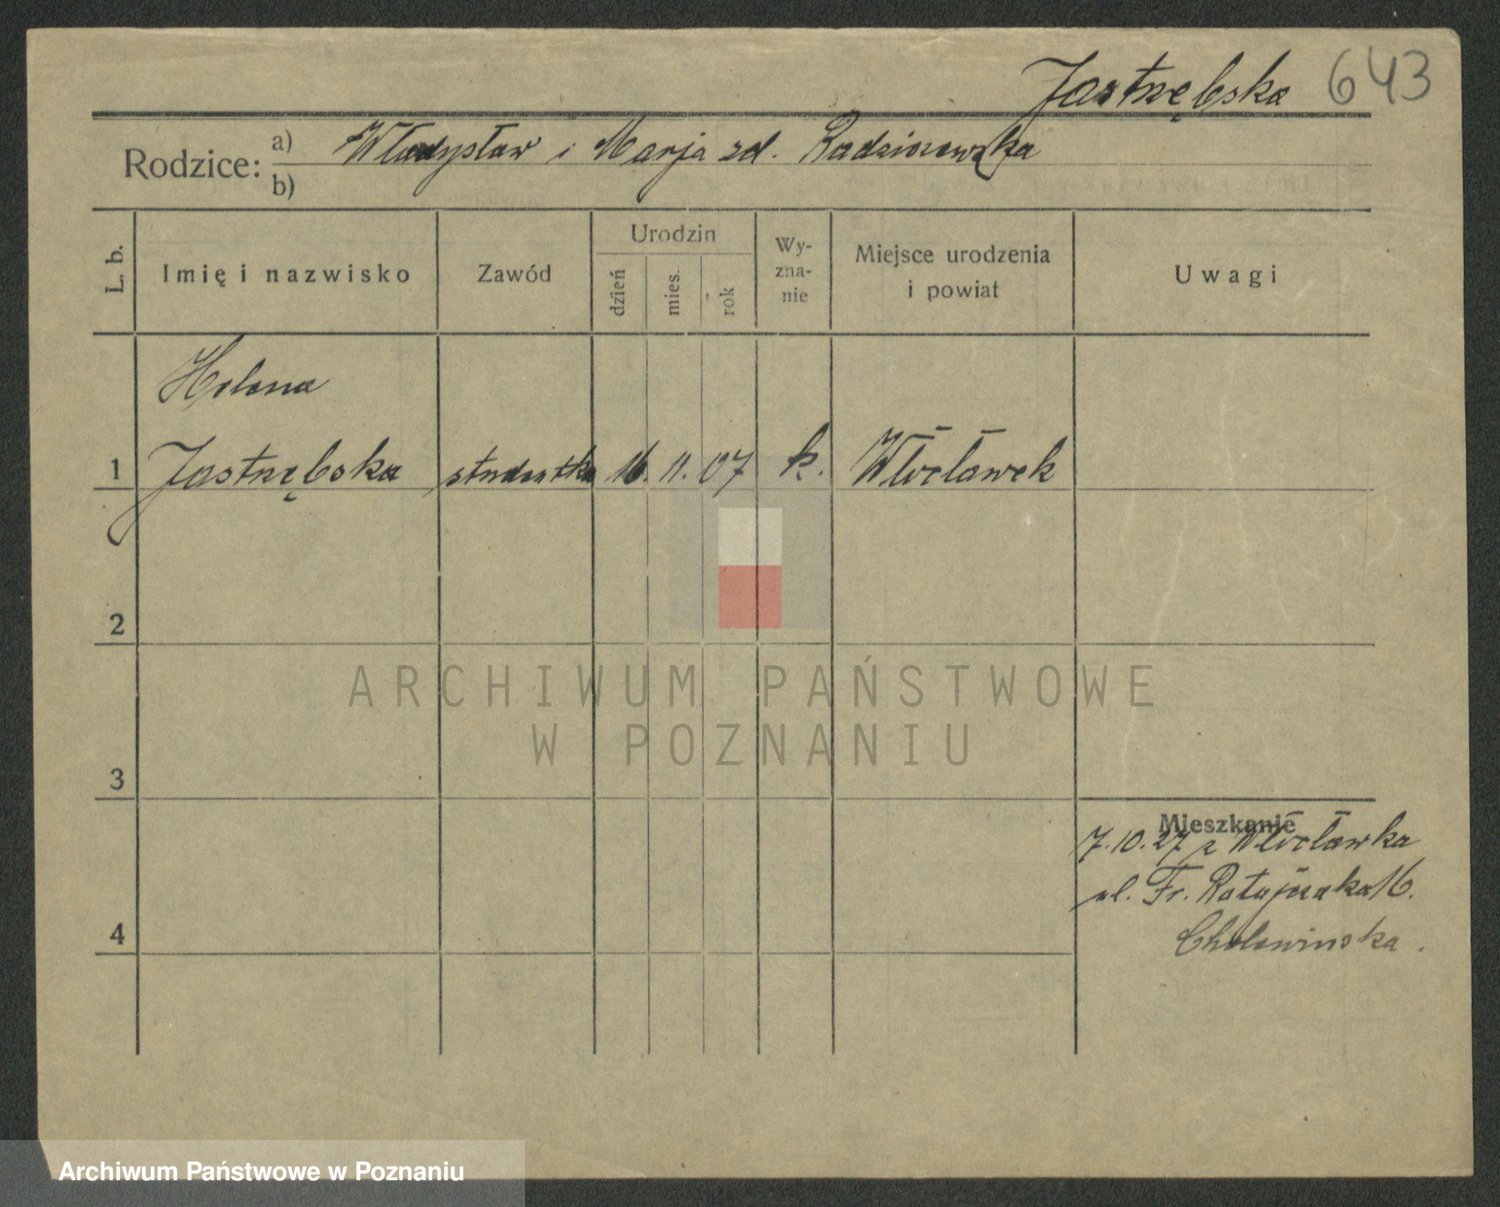 Jastrzębska 643
Rodzice: a) Władysław i Marja zd. Radziszewska
b)
L. b. Imię i nazwisko Zawód Urodzin dzień mies. rok Wy-zna-nie Miejsce urodzenia i powiat Uwagi
Helena
1 Jastrzębska studentka 16. 11. 07 k. Włocławek
2
ARCHIWUM PAŃSTWOWE
W POZNANIU
3
Mieszkanie
7.10.27 z Włocławka
ul. Fr. Ratajczaka 16.
4
Archiwum Państwowe w Poznaniu